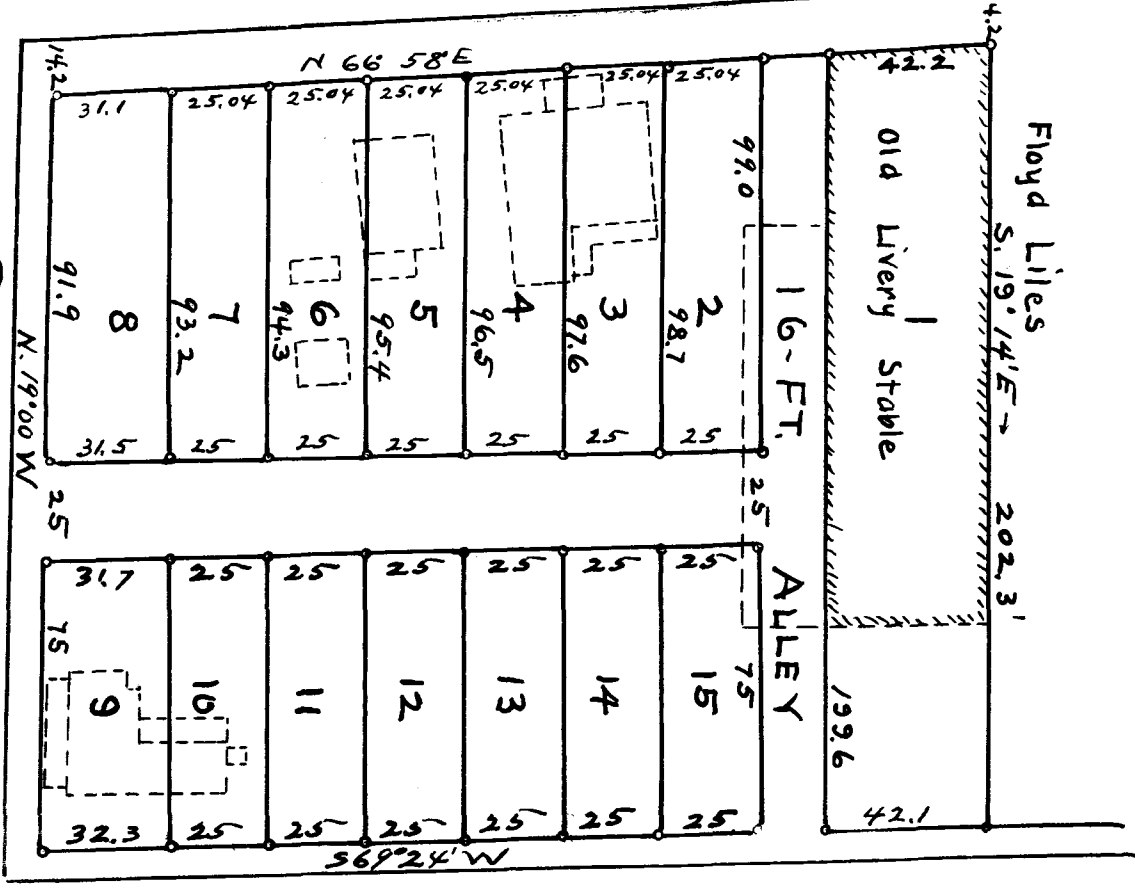 N 66 58'E
14.2
31.1
25.04
25.04
25.04
25.04
25.04
25.04
42.2
4.2
99.0
Floyd Liles
S. 19° 14'E → 202.3'
Old Livery Stable
1
16-FT. ALLEY
91.9
8
93.2
7
94.3
6
95.4
5
96.5
4
97.6
3
98.7
2
31.5
25
25
25
25
25
25
N. 19°00 W
25
25
31.7
25
25
25
25
25
25
75
9
10
11
12
13
14
15
75
199.6
32.3
25
25
25
25
25
25
42.1
S69°24'W